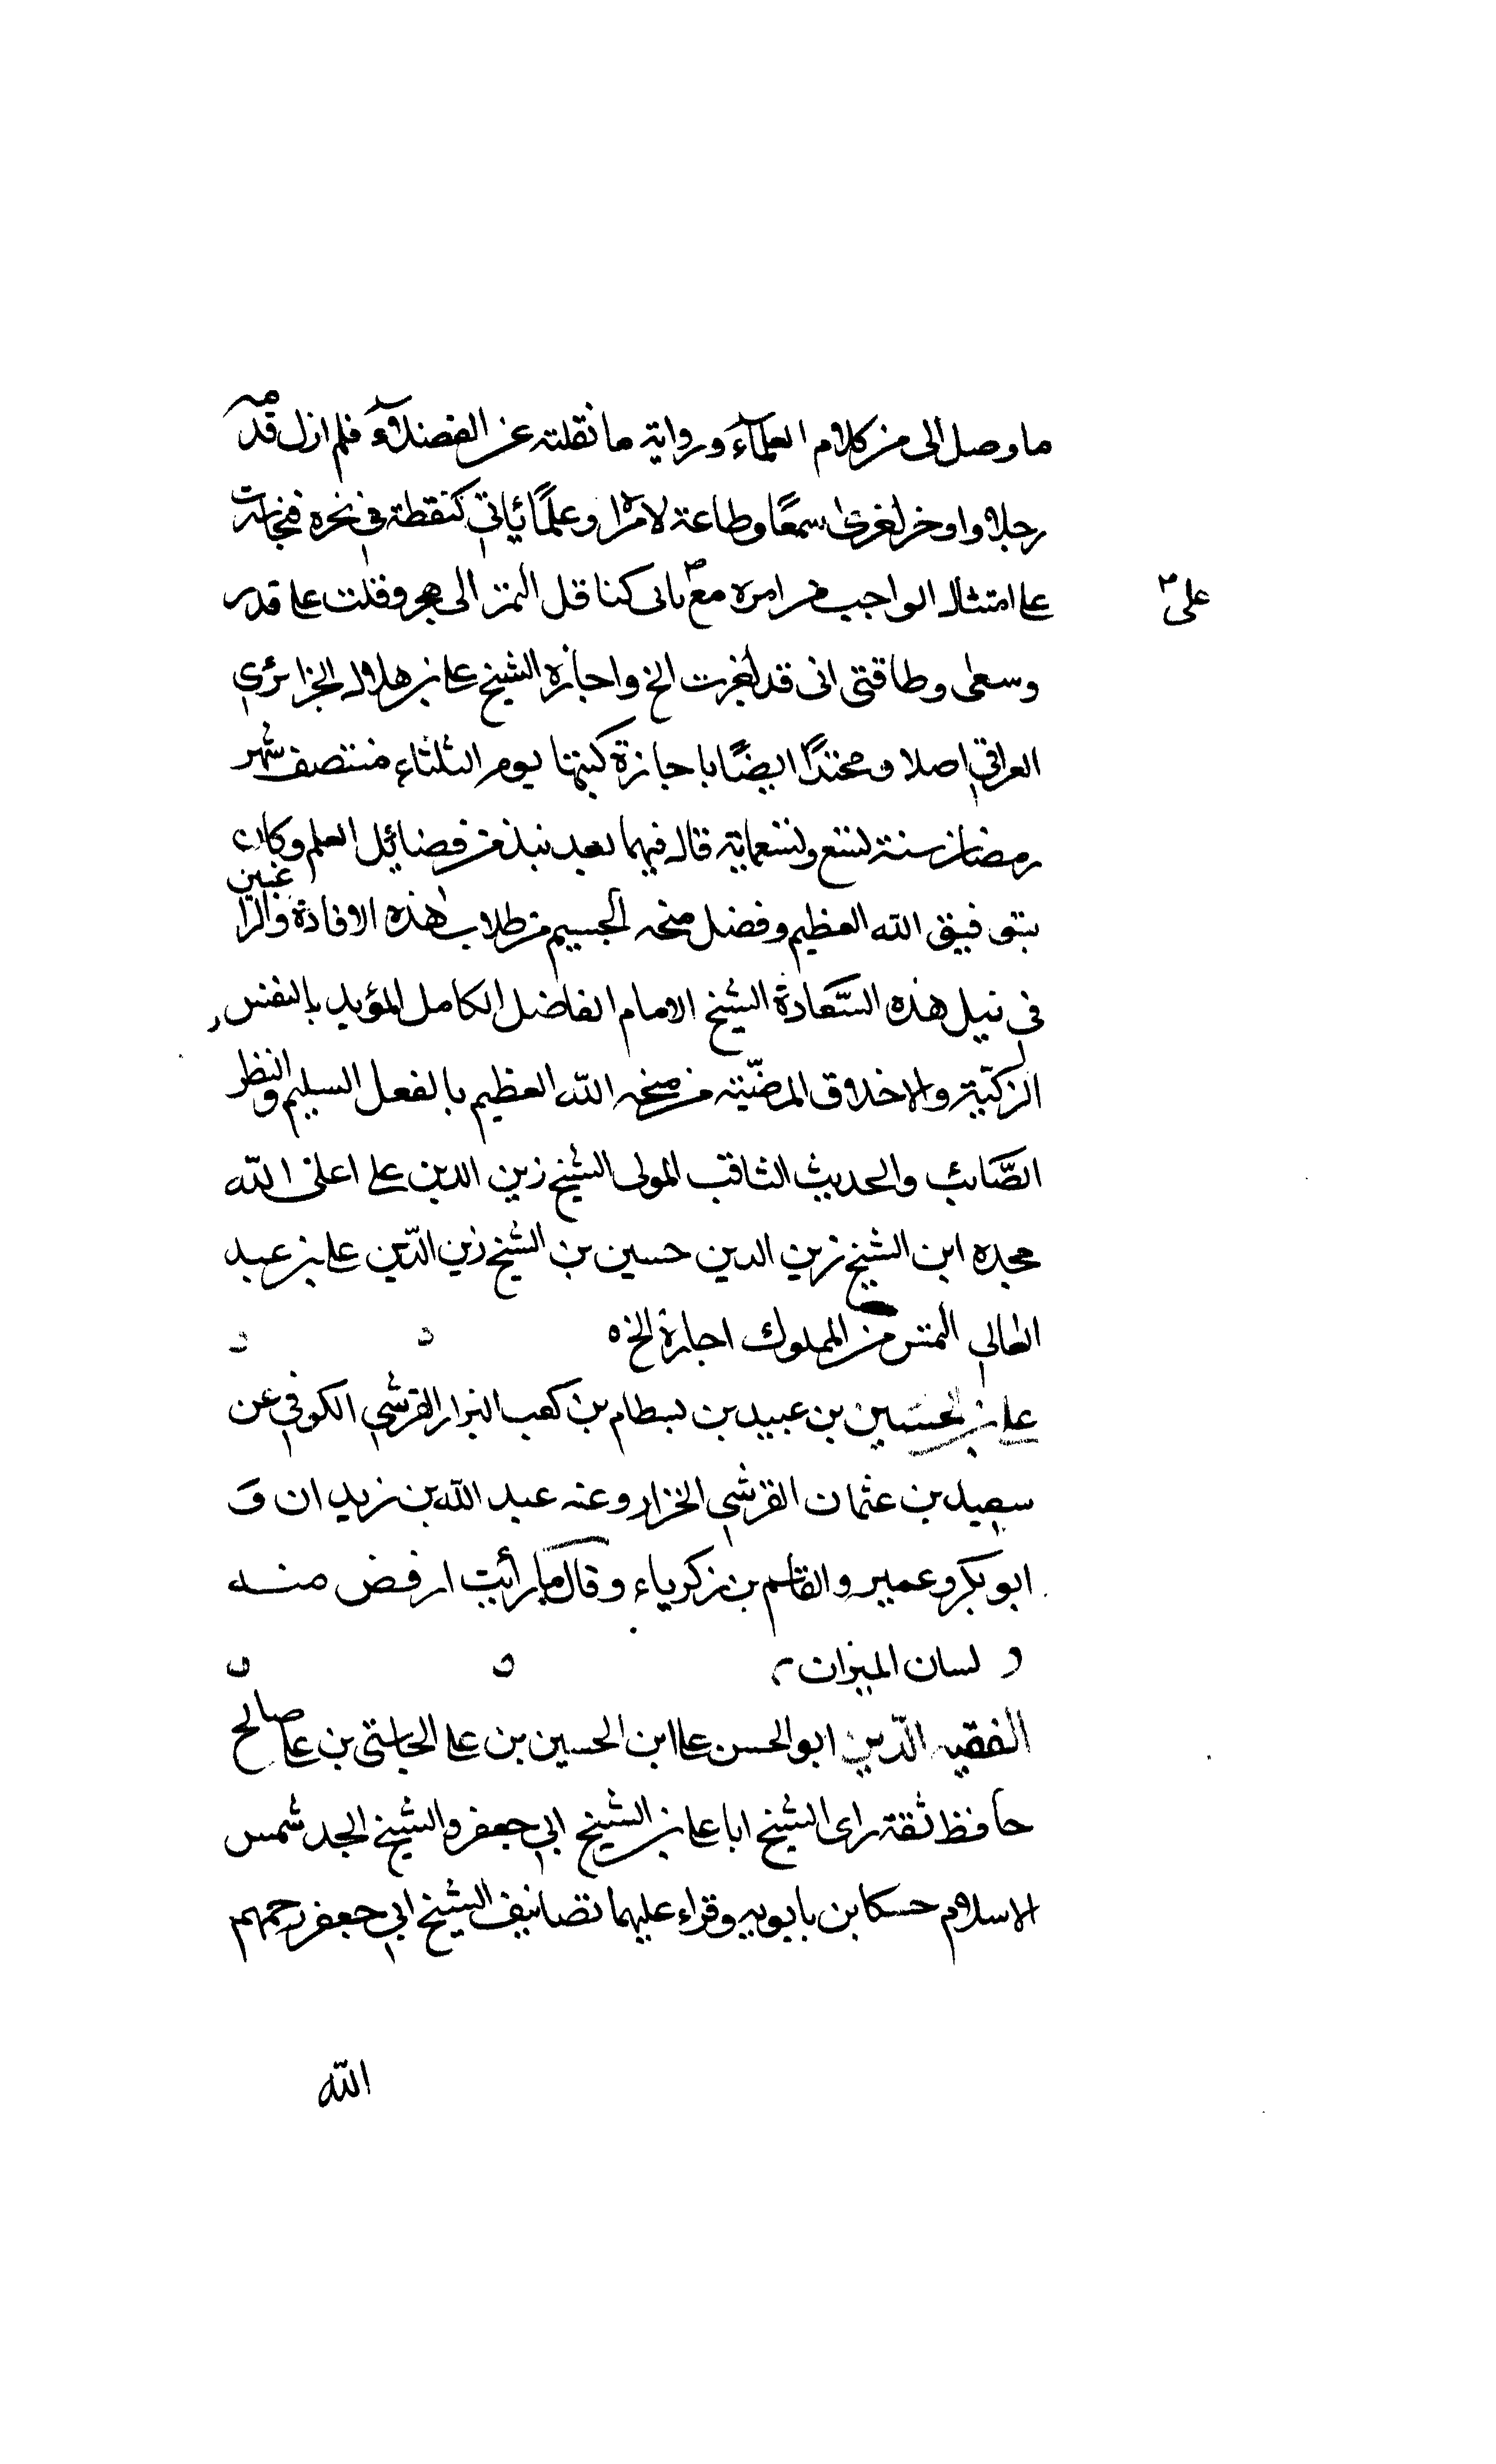 ما وصل الى من كلام العلماء ورواية ما نقلته عن الفضلاء فلم ازل اقدم
رجلا واوخر اخرى سمعا وطاعة لامره وعلمًا باني كنقطة في بحره فتجاسرت
على امتثال الواجب من امره مع باني كناقل التمر الى هجر وقلت على قدر
على
وسعى وطاقتى انى قد اخبرت الخ واجازه الشيخ على بن هلال الجزائري
العراقي اصلا ومحتدًا ايضًا باجازة كتبها يوم الثلثاء منتصف شهر
رمضان سنة تسع وتسعمائة قال فيها بعد نبذ من فضائل العلم وكان
بتوفيق الله العظيم وفضل منحه الجسيم من طلاب هذه الافادة والراغبين
فى نيل هذه السَّعَادة الشيخ الامام الفاضل الكامل المؤيد بالنفس
الزكيّة والاخلاق المرضيّة من منحه الله العظيم بالفعل السليم والنظر
الصَّائب والحديث الثاقب المولى الشيخ زين الدين على اعلى الله
مجده ابن الشيخ زين الدين حسين بن الشيخ زين الدّين على بن عبد
العالي التمس من المملوك اجازة الخ ه
على بن الحسين بن عبيد بن بسطام بن كعب البزار القرشي الكوفي عن
سعيد بن عثمان القرشي الخزار وعنه عبد الله بن زيدان وَ
ابو بكر وعمير والقاسم بن زكرياء وقال ما رأيت ارفض منه
لسان الميزان
الفقيه الدّين ابو الحسن على ابن الحسين بن على الجاستى بن على صالح
حافظ ثقة راى الشيخ ابا على بن الشيخ ابي جعفر والشيخ الجد شمس
الاسلام حسكا بن بابويه وقراء عليهما تصانيف الشيخ ابي جعفر رحمهم
الله